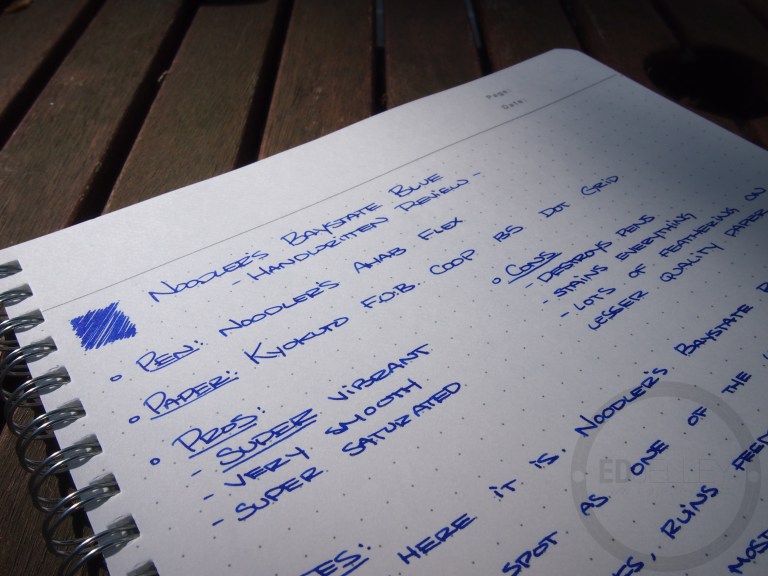 Page:
Date:
NOODLER'S BAYSTATE BLUE
- HANDWRITTEN REVIEW -
◦ PEN: NOODLER'S AHAB FLEX
◦ PAPER: KYOKUTO F.O.B. COOP B5 DOT GRID
◦ PROS:
- SUPER VIBRANT
- VERY SMOOTH
- SUPER SATURATED
◦ CONS
- DESTROYS PENS
- STAINS EVERYTHING
- LOTS OF FEATHERING ON
LESSER QUALITY PAPER
HERE IT IS. NOODLER'S BAYSTATE
SPOT AS ONE OF THE
RUINS
MOST
ED JELLEY